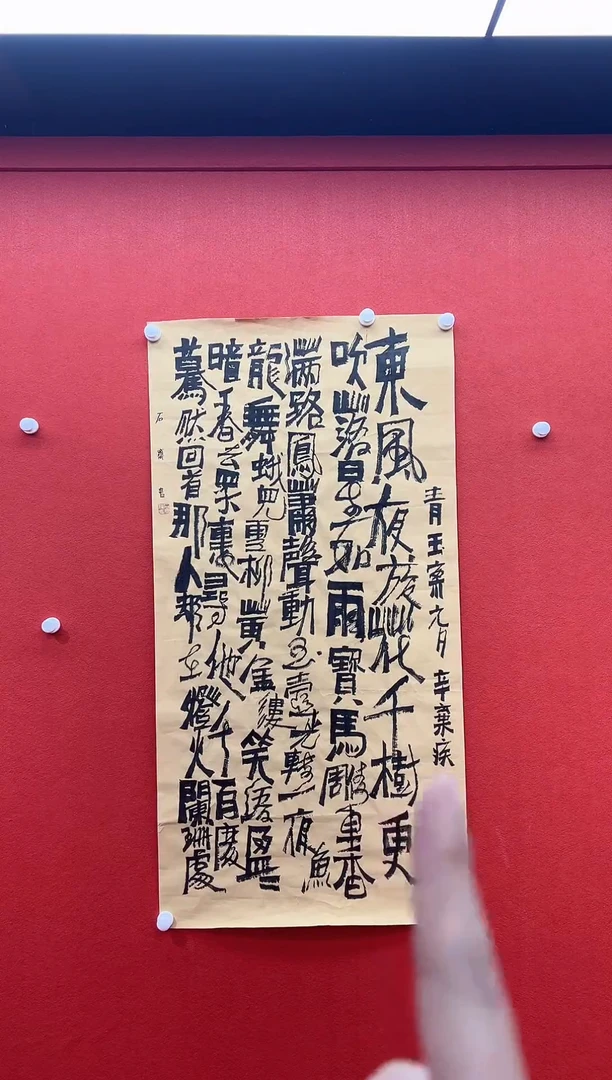 青玉案元夕 辛棄疾
東風夜放花千樹更
吹落星如雨寶馬雕車香
滿路鳳蕭聲動玉壺光轉一夜魚
龍舞蛾兒雪柳黃金縷笑語盈盈
暗香去眾裏尋他千百度
驀然回首那人卻在燈火闌珊處
石 書